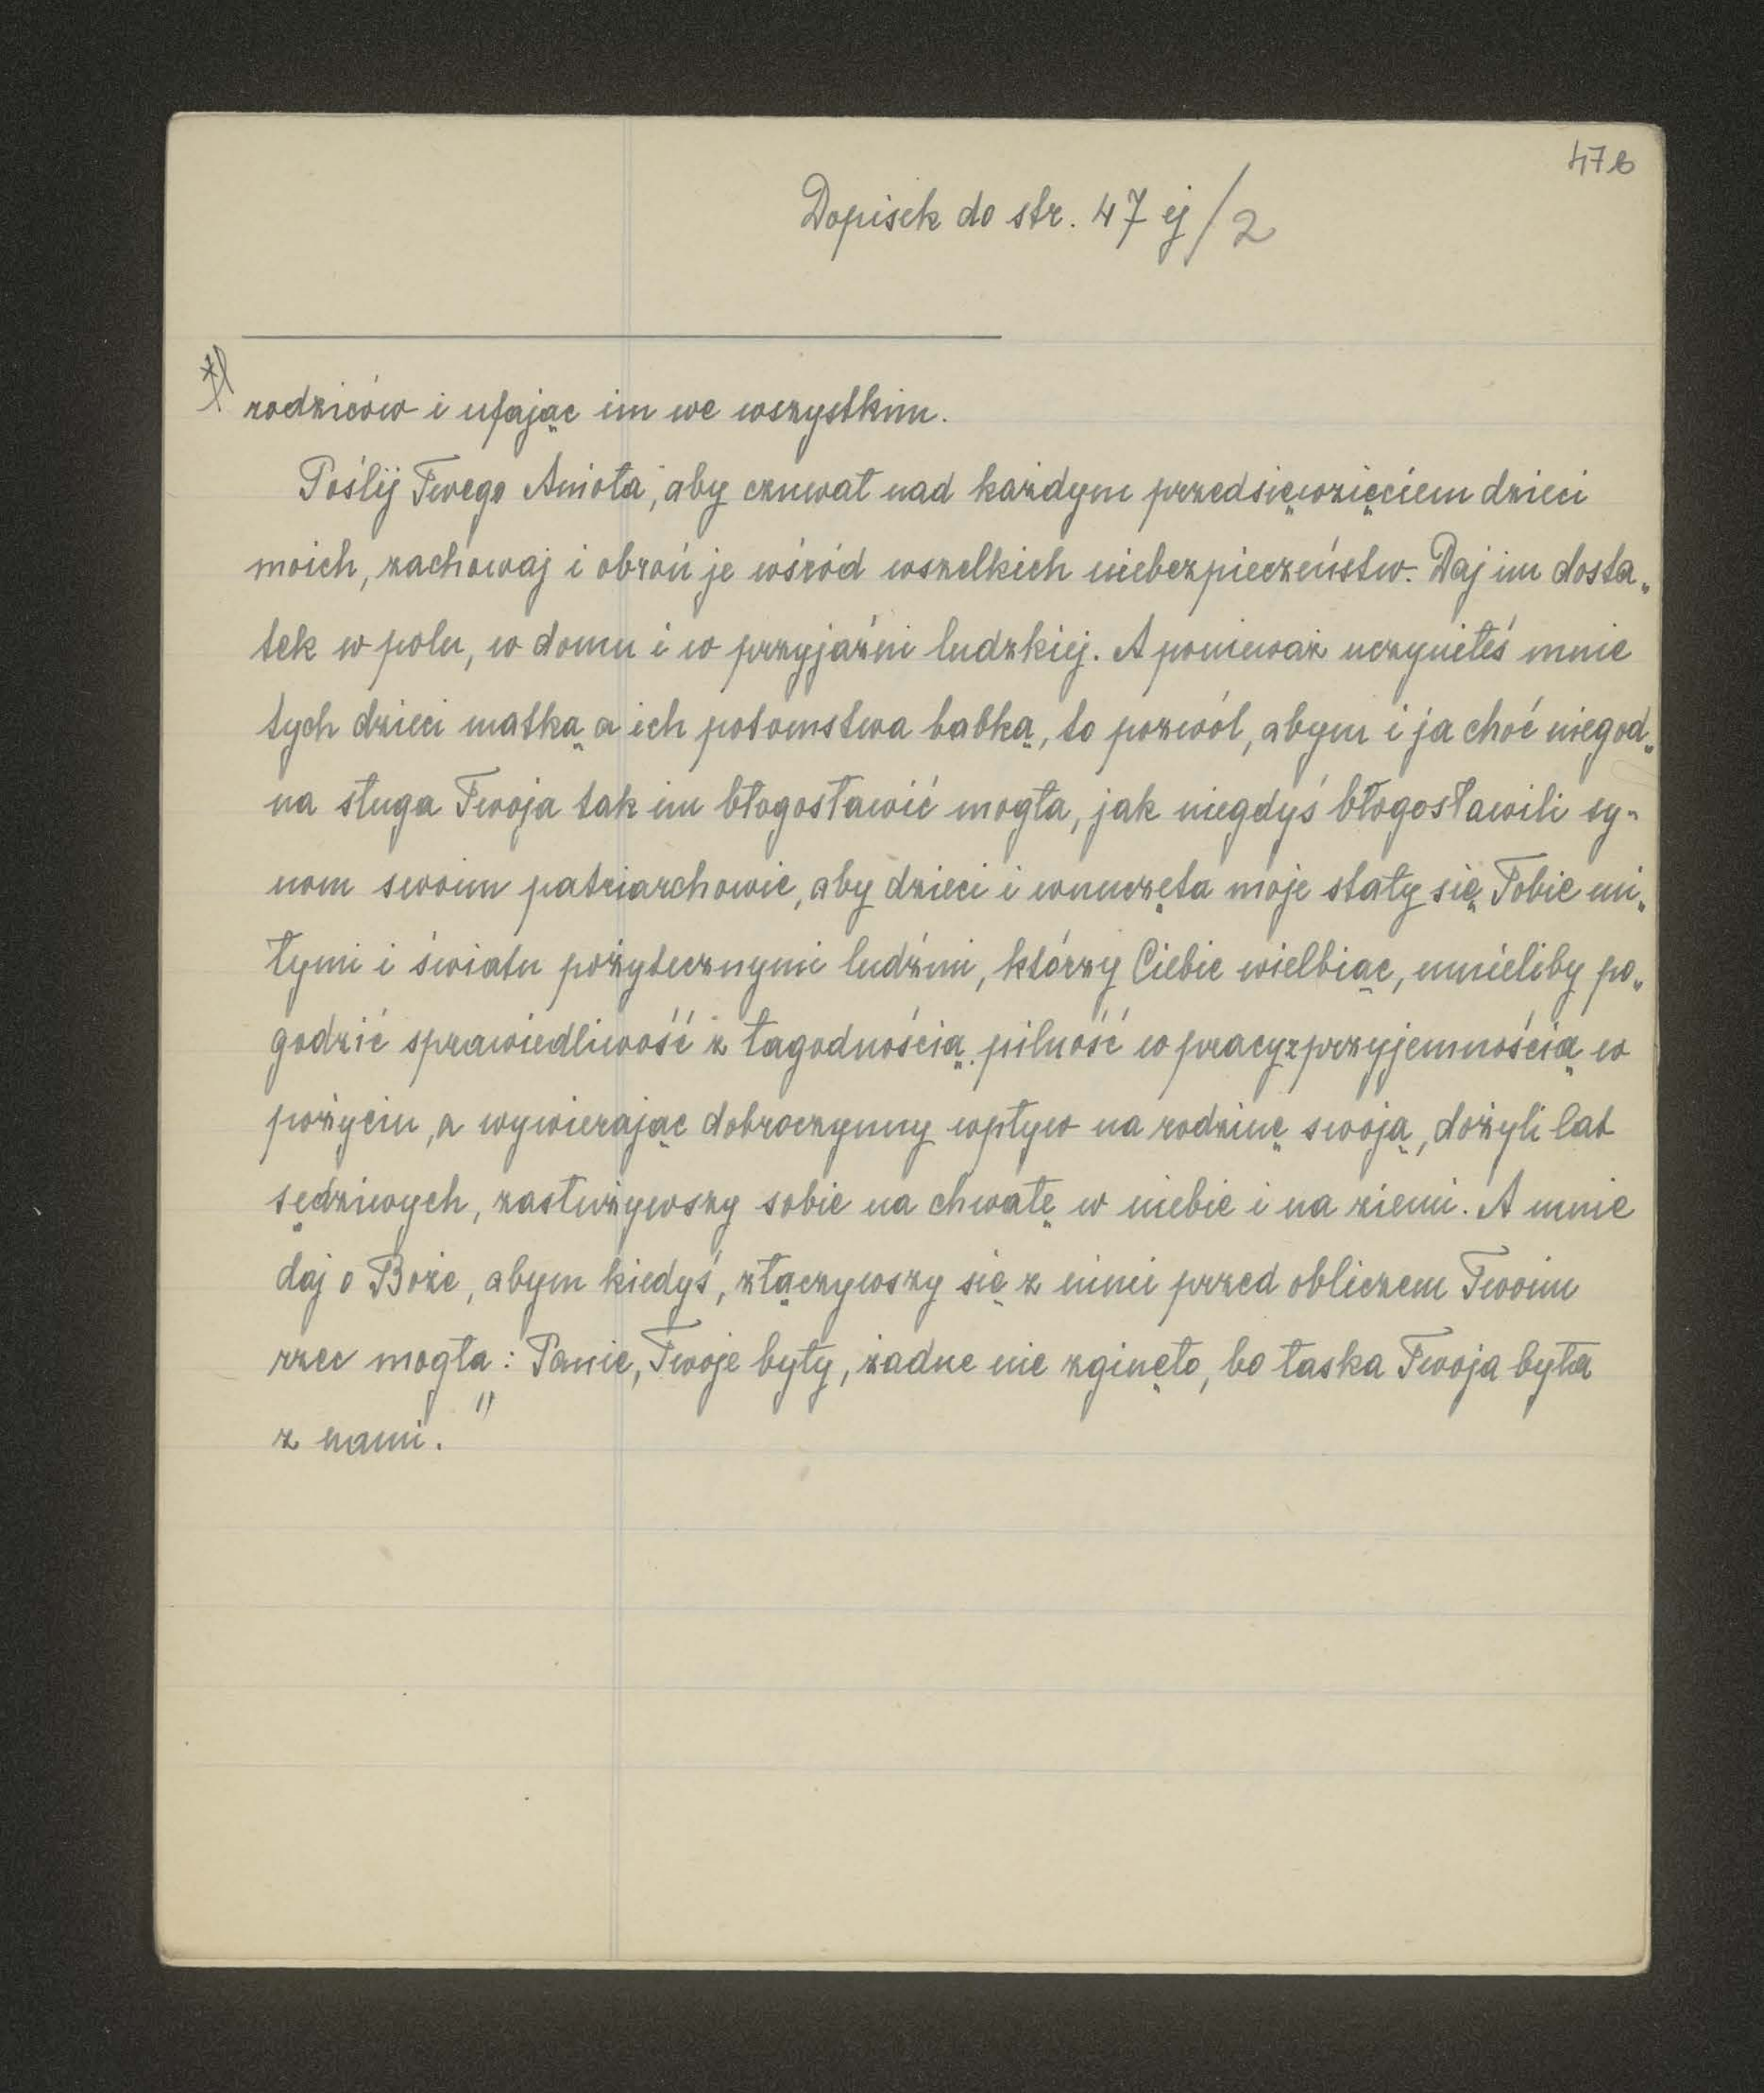 47b
Dopisek do str. 47 ej /2
*) rodziców i ufając im we wszystkim.
Poślij Twego Anioła, aby czuwał nad każdym przedsięwzięciem dzieci
moich, zachowaj i obroń je wśród wszelkich niebezpieczeństw. Daj im dosta„
tek w polu, w domu i w przyjaźni ludzkiej. A ponieważ uczyniłeś mnie
tych dzieci matką a ich potomstwa babką, to pozwól, abym i ja choć niegod„
na sługa Twoja tak im błogosławić mogła, jak niegdyś błogosławili sy-
nom swoim patriarchowie, aby dzieci i wnuczęta moje stały się Tobie mi„
łymi i światu pożytecznymi ludźmi, którzy Ciebie wielbiąc, umieliby po„
godzić sprawiedliwość z łagodnością, pilność w pracy z przyjemnością w
pożyciu, a wywierając dobroczynny wpływ na rodzinę swoją, dożyli lat
sędziwych, zasłużywszy sobie na chwałę w niebie i na ziemi. A mnie
daj o Boże, abym kiedyś, złączywszy się z nimi przed obliczem Twoim
rzec mogła: Panie, Twoje były, żadne nie zginęło, bo łaska Twoja była
z nami."